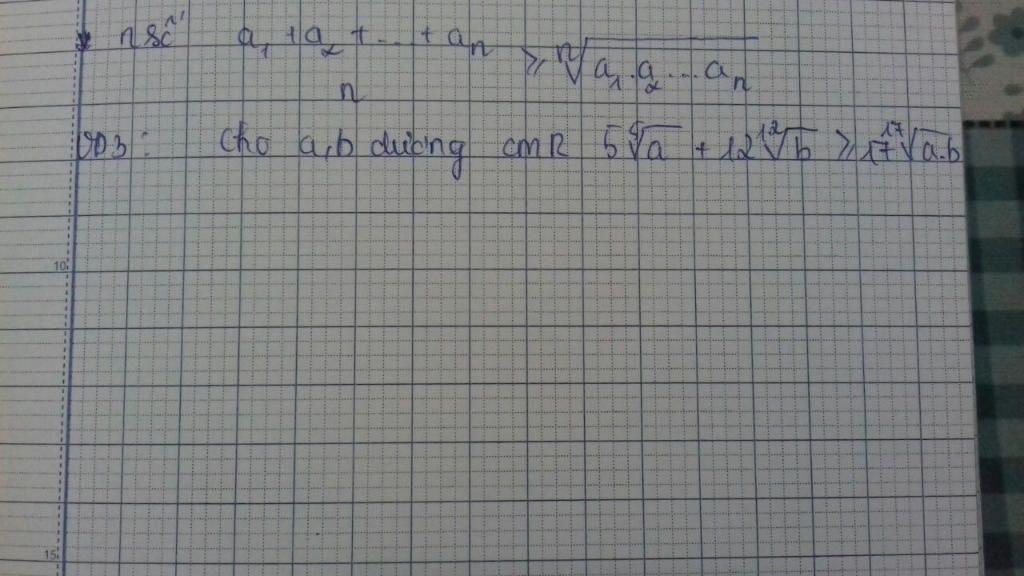 n số a₁ + a₂ + ... + aₙ / n ≥ ⁿ√(a₁.a₂...aₙ)
VD3: Cho a,b dương cmR 5⁵√a + 12¹²√b ≥ 17¹⁷√(a.b)
10
15